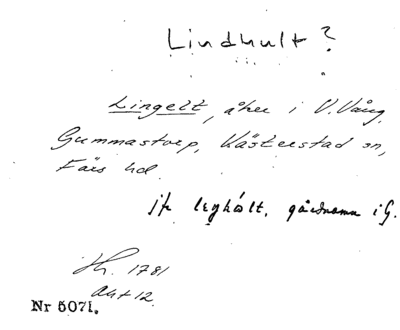 Lindhult?
Lingelt, åker i V. Vång,
Gummastorp, Västerstad sn,
Färs hd.
jfr leghólt, gårdnamn i G.
Sh. 1781
akt 12.
Nr 5071.